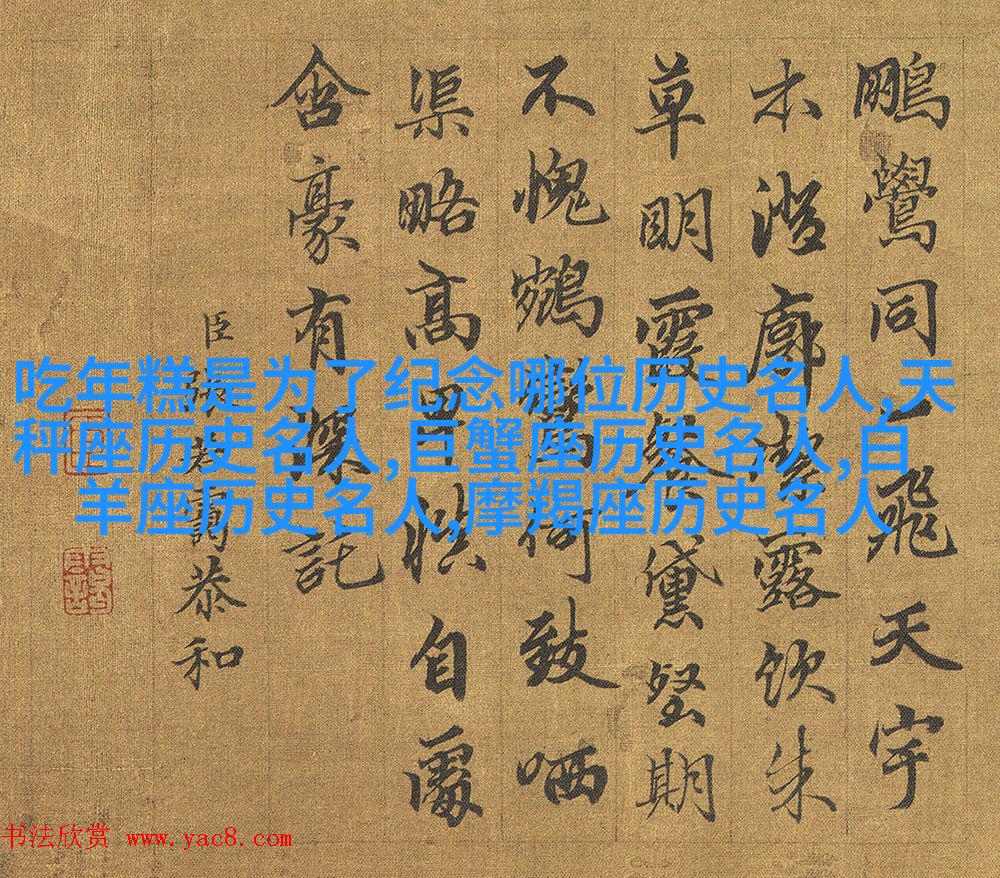 鵬鷽同一飛天宇
木澄廓潔露飲朱
草明霞發黛壑期
不愧鵷何致哂
渠略高自屬
含豪有探託
臣張若靄恭和
吃年糕是为了纪念哪位历史名人,天
秤座历史名人,巨蟹座历史名人,白
羊座历史名人,摩羯座历史名人
书法欣赏 www.yac8.com